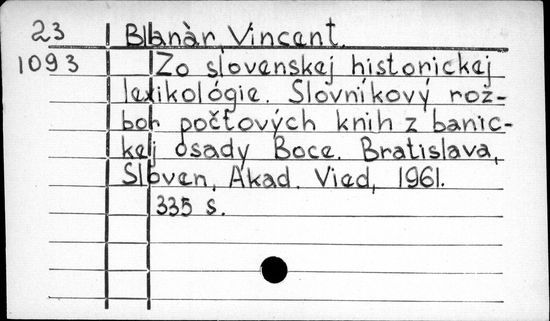 23 Blanàr, Vincent.
1093 Zo slovenskej historickej
lexikológie. Slovníkový roz-
bor počtových knih z banic-
kej osady Boce. Bratislava,
Sloven. Akad. Vied, 1961.
335 s.